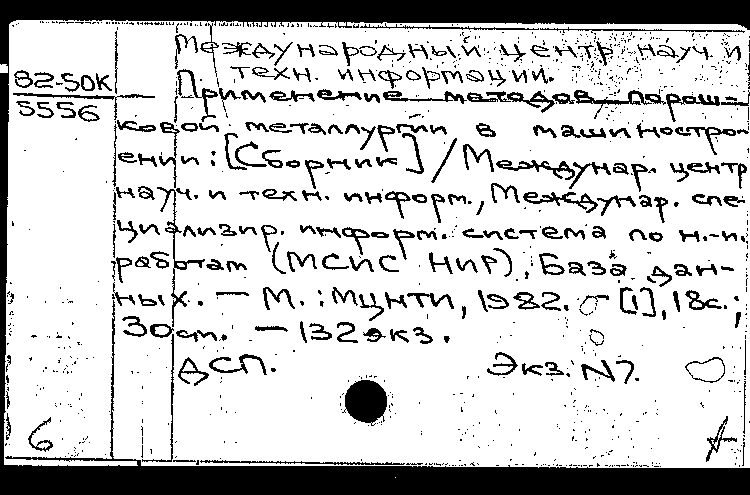 Международный центр науч и
техн. информации.
82-50К
5556
Применение методов порош-
ковой металлургии в машинострο-
ении: [Сборник] / Междунар. центр
науч. и техн. информ., Междунар. спе-
циализир. информ. система по н.-и.
работам (МСИС НИР), База дан-
ных. — М. : МЦНТИ, 1982. — [1], 18с.;
30см. — 132экз.
ДСП. Экз. N7.
6